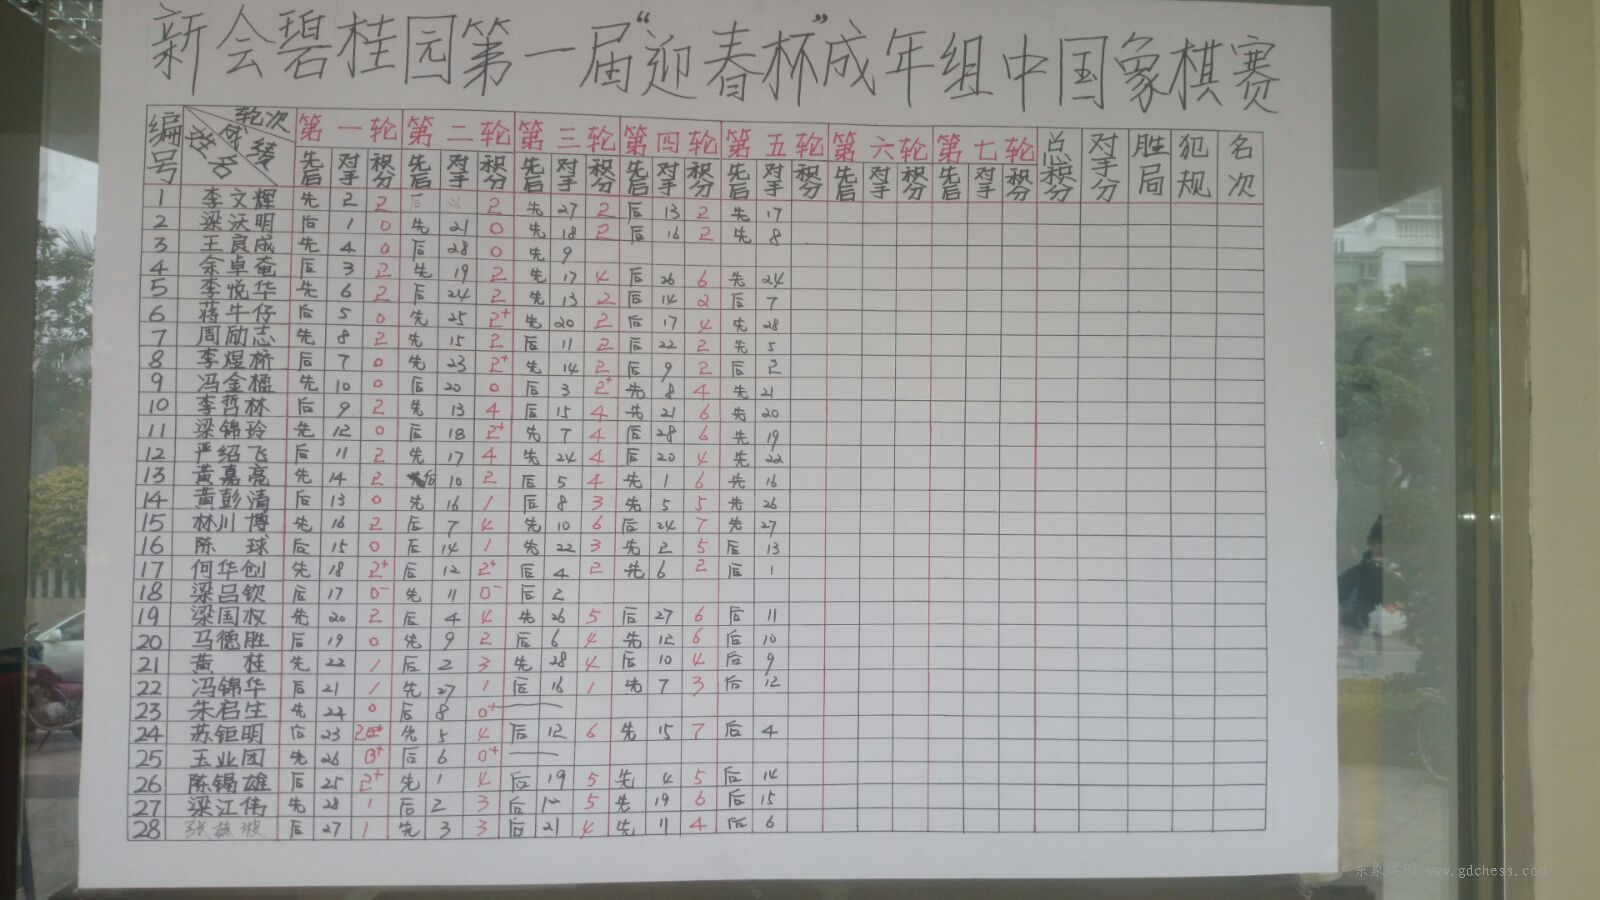 新会碧桂园第一届“迎春杯”成年组中国象棋赛
编号 轮次 成绩 姓名 第一轮 第二轮 第三轮 第四轮 第五轮 第六轮 第七轮 总积分 对手分 胜局 犯规 名次
先后 对手 积分 先后 对手 积分 先后 对手 积分 先后 对手 积分 先后 对手 积分 先后 对手 积分 先后 对手 积分
1 李文辉 先 2 2 后 26 2 先 27 2 后 13 2 先 17
2 梁沃明 后 1 0 先 21 0 先 18 2 后 16 2 先 8
3 王良成 先 4 0 后 28 0 先 9
4 余卓奄 后 3 2 先 19 2 先 17 4 后 26 6 先 24
5 李悦华 先 6 2 后 24 2 先 13 2 后 14 2 后 7
6 蒋牛仔 后 5 0 先 25 2+ 先 20 2 后 17 4 先 28
7 周励志 先 8 2 先 15 2 后 11 2 后 22 2 先 5
8 李煜桥 后 7 0 先 23 2+ 先 14 2 后 9 2 后 2
9 冯金橘 先 10 0 后 20 0 后 3 2+ 先 8 4 先 21
10 李哲林 后 9 2 先 13 4 后 15 4 先 21 6 先 20
11 梁锦玲 先 12 0 后 18 2+ 先 7 4 后 28 6 先 19
12 严绍飞 后 11 2 先 17 4 先 24 4 后 20 4 先 22
13 黄嘉亮 先 14 2 后 10 2 后 5 4 先 1 6 先 16
14 黄彭清 后 13 0 先 16 1 后 8 3 先 5 5 先 26
15 林川博 先 16 2 后 7 4 先 10 6 后 24 7 先 27
16 陈球 后 15 0 后 14 1 先 22 3 先 2 5 后 13
17 何华创 先 18 2+ 后 12 2+ 后 4 2 先 6 2 后 1
18 梁吕钦 后 17 0- 先 11 0- 后 2
19 梁国权 先 20 2 后 4 4 先 26 5 后 27 6 后 11
20 马德胜 后 19 0 先 9 2 后 6 4 先 12 6 后 10
21 黄桂 先 22 1 后 2 3 先 28 4 后 10 4 后 9
22 冯锦华 后 21 1 先 27 1 后 16 1 先 7 3 后 12
23 朱启生 先 24 0 后 8 0+
24 苏钜明 后 23 2 先 5 4 后 12 6 先 15 7 后 4
25 玉业团 先 26 0+ 后 6 0+
26 陈锡雄 后 25 2+ 先 1 4 后 19 5 先 4 5 后 14
27 梁江伟 先 28 1 后 2 3 后 1 5 先 19 6 后 15
28 张 波 后 27 1 先 3 3 后 21 4 先 11 4 后 6
广东象棋网 www.gdchess.com